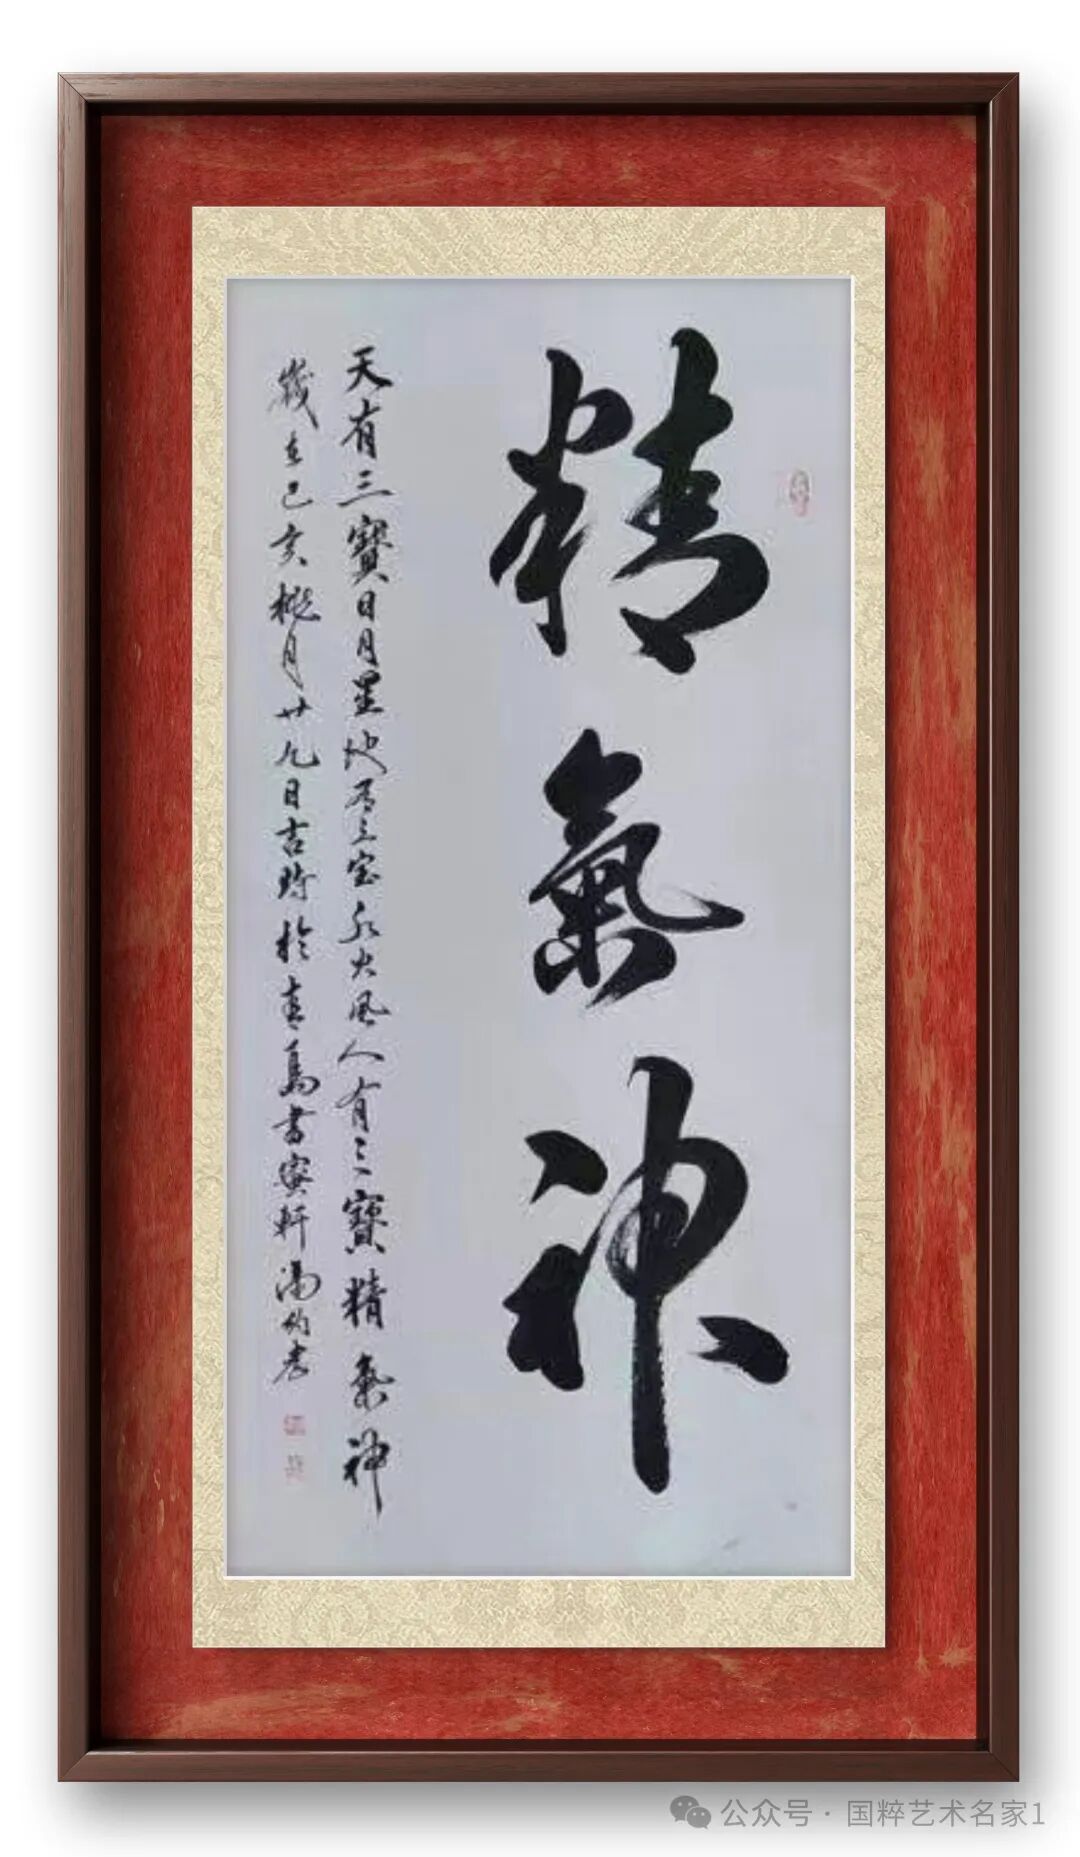 精氣神
天有三寶日月星地有三宝水火風人有三寶精氣神
歲在己亥桃月廿九日吉時於青島書寶軒湯
公众号 · 国粹艺术名家1